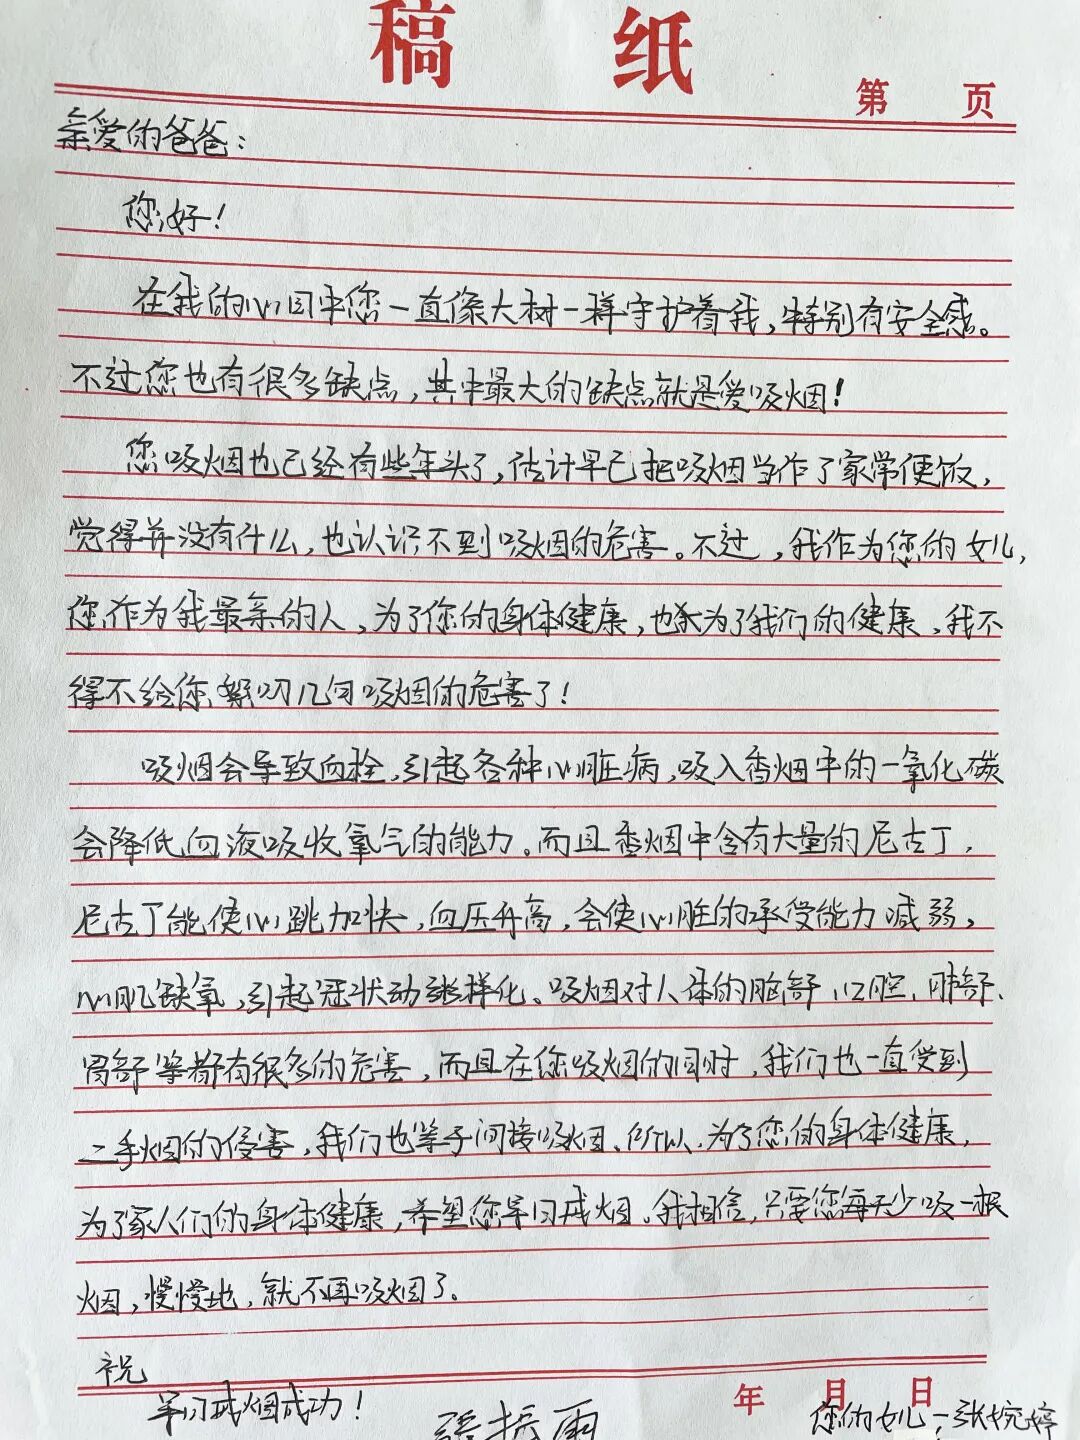 稿 纸
第 页
亲爱的爸爸：
您好！
在我的心目中您一直像大树一样守护着我，特别有安全感。
不过您也有很多缺点，其中最大的缺点就是爱吸烟！
您吸烟也已经有些年头了，估计早已把吸烟当作了家常便饭，
觉得并没有什么，也认识不到吸烟的危害。不过，我作为您的女儿，
您作为我最亲的人，为了您的身体健康，也为了我们的健康，我不
得不给你絮叨几句吸烟的危害了！
吸烟会导致血栓，引起各种心脏病，吸入香烟中的一氧化碳
会降低血液吸收氧气的能力。而且香烟中含有大量的尼古丁，
尼古丁能使心跳加快，血压升高，会使心脏的承受能力减弱，
心肌缺氧，引起冠状动粥样化。吸烟对人体的脑部、口腔、肺部、
胃部等都有很多的危害，而且在您吸烟的同时，我们也一直受到
二手烟的侵害，我们也等于间接吸烟、所以，为了您的身体健康，
为了家人们的身体健康，希望您早日戒烟。我相信，只要您每天少吸一根
烟，慢慢地，就不再吸烟了。
祝
早日戒烟成功！
年 月 日
张振雨
您的女儿：张婉婷